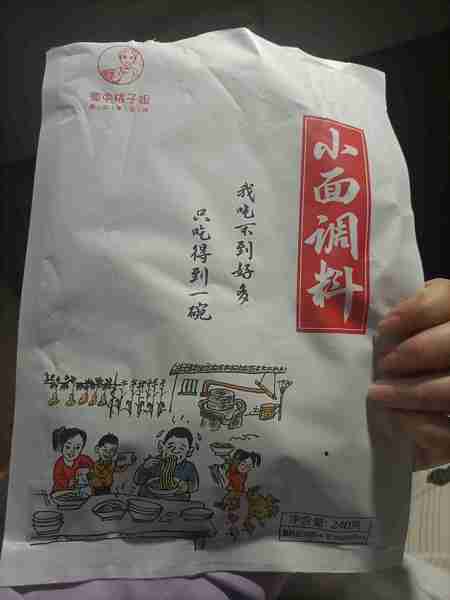 渝中胖子妈
小面调料
我吃不到好多
只吃得到一碗
净含量: 240克